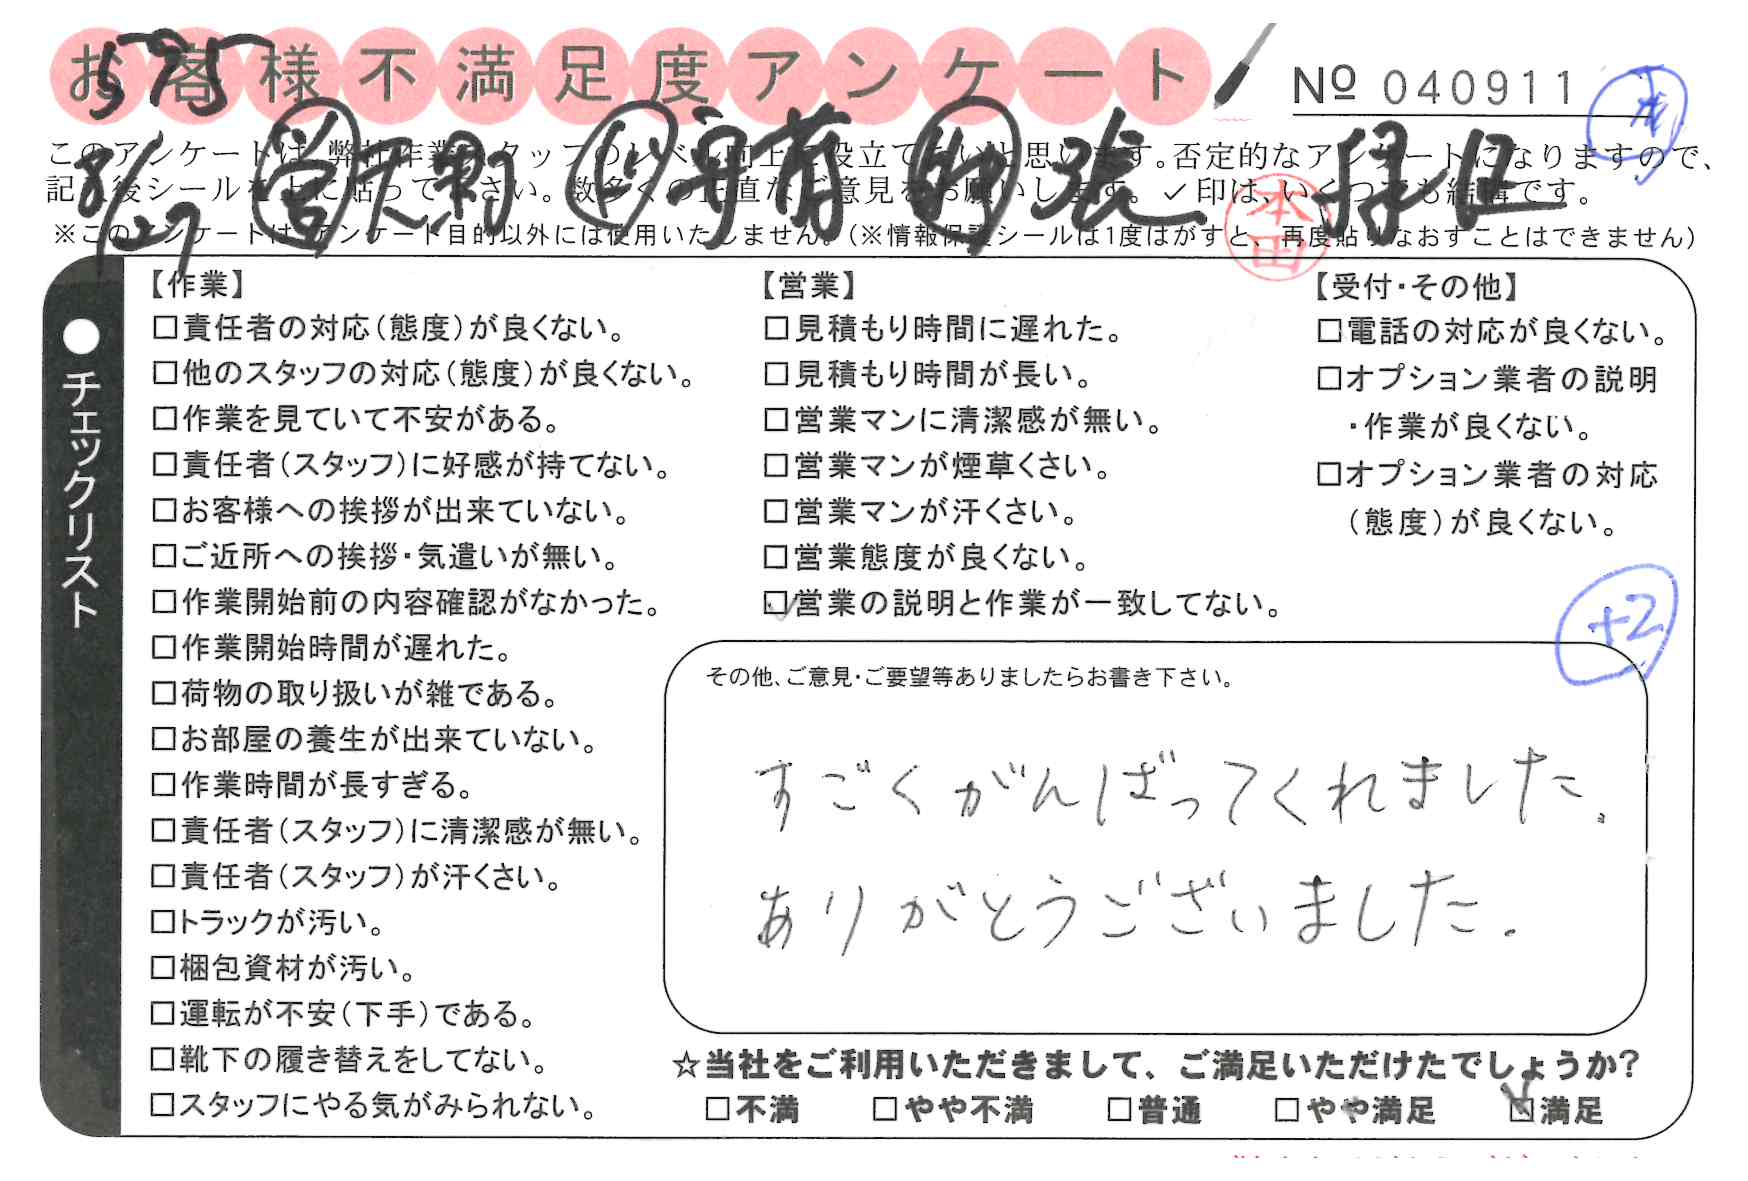 お客様不満足度アンケート
575
Nº 040911
このアンケートは、弊社作業スタッフのレベル向上に役立てたいと思います。否定的なアンケートになりますので、
記入後シールを上に貼って下さい。数多くの正直なご意見をお願いします。✓印は、いくつでも結構です。
※このアンケートは、アンケート目的以外には使用いたしません。(※情報保護シールは1度はがすと、再度貼りなおすことはできません)
8/27
営
本田
●チェックリスト
【作業】
□責任者の対応(態度)が良くない。
□他のスタッフの対応(態度)が良くない。
□作業を見ていて不安がある。
□責任者(スタッフ)に好感が持てない。
□お客様への挨拶が出来ていない。
□ご近所への挨拶・気遣いが無い。
□作業開始前の内容確認がなかった。
□作業開始時間が遅れた。
□荷物の取り扱いが雑である。
□お部屋の養生が出来ていない。
□作業時間が長すぎる。
□責任者(スタッフ)に清潔感が無い。
□責任者(スタッフ)が汗くさい。
□トラックが汚い。
□梱包資材が汚い。
□運転が不安(下手)である。
□靴下の履き替えをしてない。
□スタッフにやる気がみられない。
【営業】
□見積もり時間に遅れた。
□見積もり時間が長い。
□営業マンに清潔感が無い。
□営業マンが煙草くさい。
□営業マンが汗くさい。
□営業態度が良くない。
☑営業の説明と作業が一致してない。
【受付・その他】
□電話の対応が良くない。
□オプション業者の説明
・作業が良くない。
□オプション業者の対応
(態度)が良くない。
+2
その他、ご意見・ご要望等ありましたらお書き下さい。
すごくがんばってくれました。
ありがとうございました。
☆当社をご利用いただきまして、ご満足いただけたでしょうか?
□不満 □やや不満 □普通 □やや満足 ☑満足